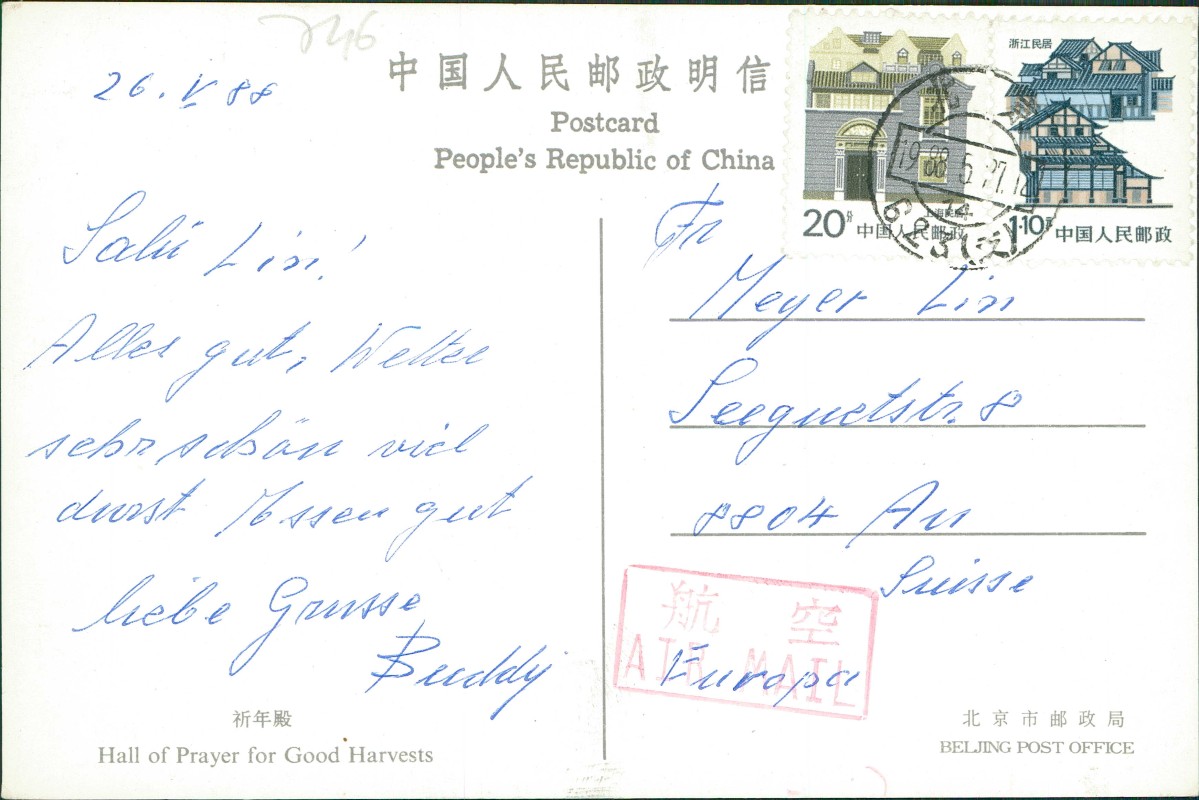 26. V 88
中国人民邮政明信
Postcard
People's Republic of China
Salü Lisi!
Alles gut, Wetter
sehr schön viel
durst Essen gut
liebe Grüsse
Buddy
祈年殿
Hall of Prayer for Good Harvests
20分
上海民居
中国人民邮政
浙江民居
1·10元
中国人民邮政
1988.5.27.18
623(支)
Fr
Meyer Lisi
Seegutstr. 8
8804 Au
Suisse
Europa
航空
AIR MAIL
北京市邮政局
BEIJING POST OFFICE